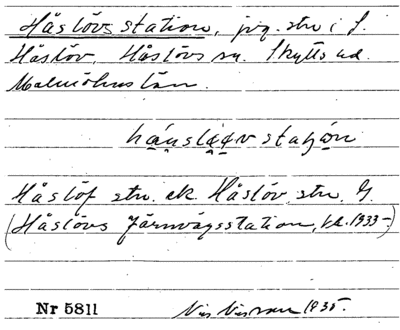 Håslövs station, jvg. stn i S.
Håslöv, Håslövs sn. Skytts hd.
Malmöhus län.
Håslöf stn. ek. Håslöv stn. G.
(Håslövs Järnvägsstation, 1933-)
Nr 5811
Nils Nilsson 1935.